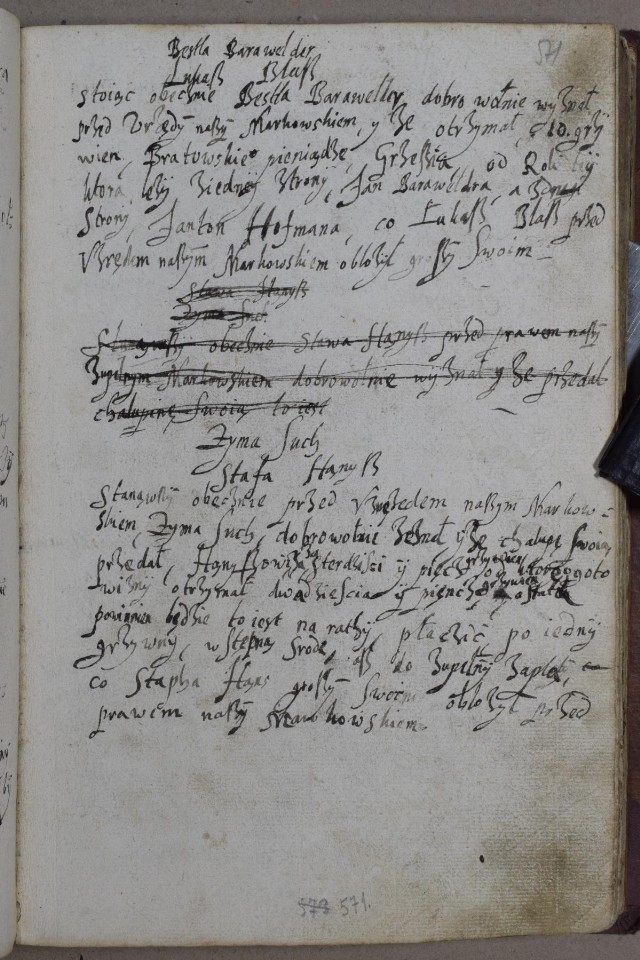 571
Bestla Barawelder
Łukaß Blaß
stoiąc obecznie Bestla Barawelder dobro wolnie wyznał
przed Vrzędy naßÿ Markowskiem, y że otrzymał, 10. grzÿ
wien, pieniądze, od Roli tÿ
ktora, leży ziednÿ strony, Jan Baraweldra, a
Strony, Janton Hofmana, co Łukaß Blaß przed
Vrzędem naßÿm Markowskiem obłożył großÿ Swoim
Stawa Hanyß
Zyma Such
obecznie Stawa Hanyß przed prawem naßÿ
Zupełnym Markowskiem dobrowolnie wÿznał y że przedał
chałupinę Swoię to iest
Zyma Such
Stafa Hanyß
Stanąwßÿ obecznie przed Vrzędem naßym Markow-
skiem, Zyma Such, dobrowolnie zeznał ÿ że chałupę Swoię
przedał, Hanyßowi za ÿ pięcz
otrzymał dwadzieścia ÿ pięncz ostatek
powinien będzie to iest na rathÿ, płaczić po iednÿ
grzywnÿ, wstepną Srodę, aß do Zupełnÿ Zapłatÿ
co Stapha Hans großÿ Swoim obłożył przed
prawem naßÿ Markowskiem
573 571.